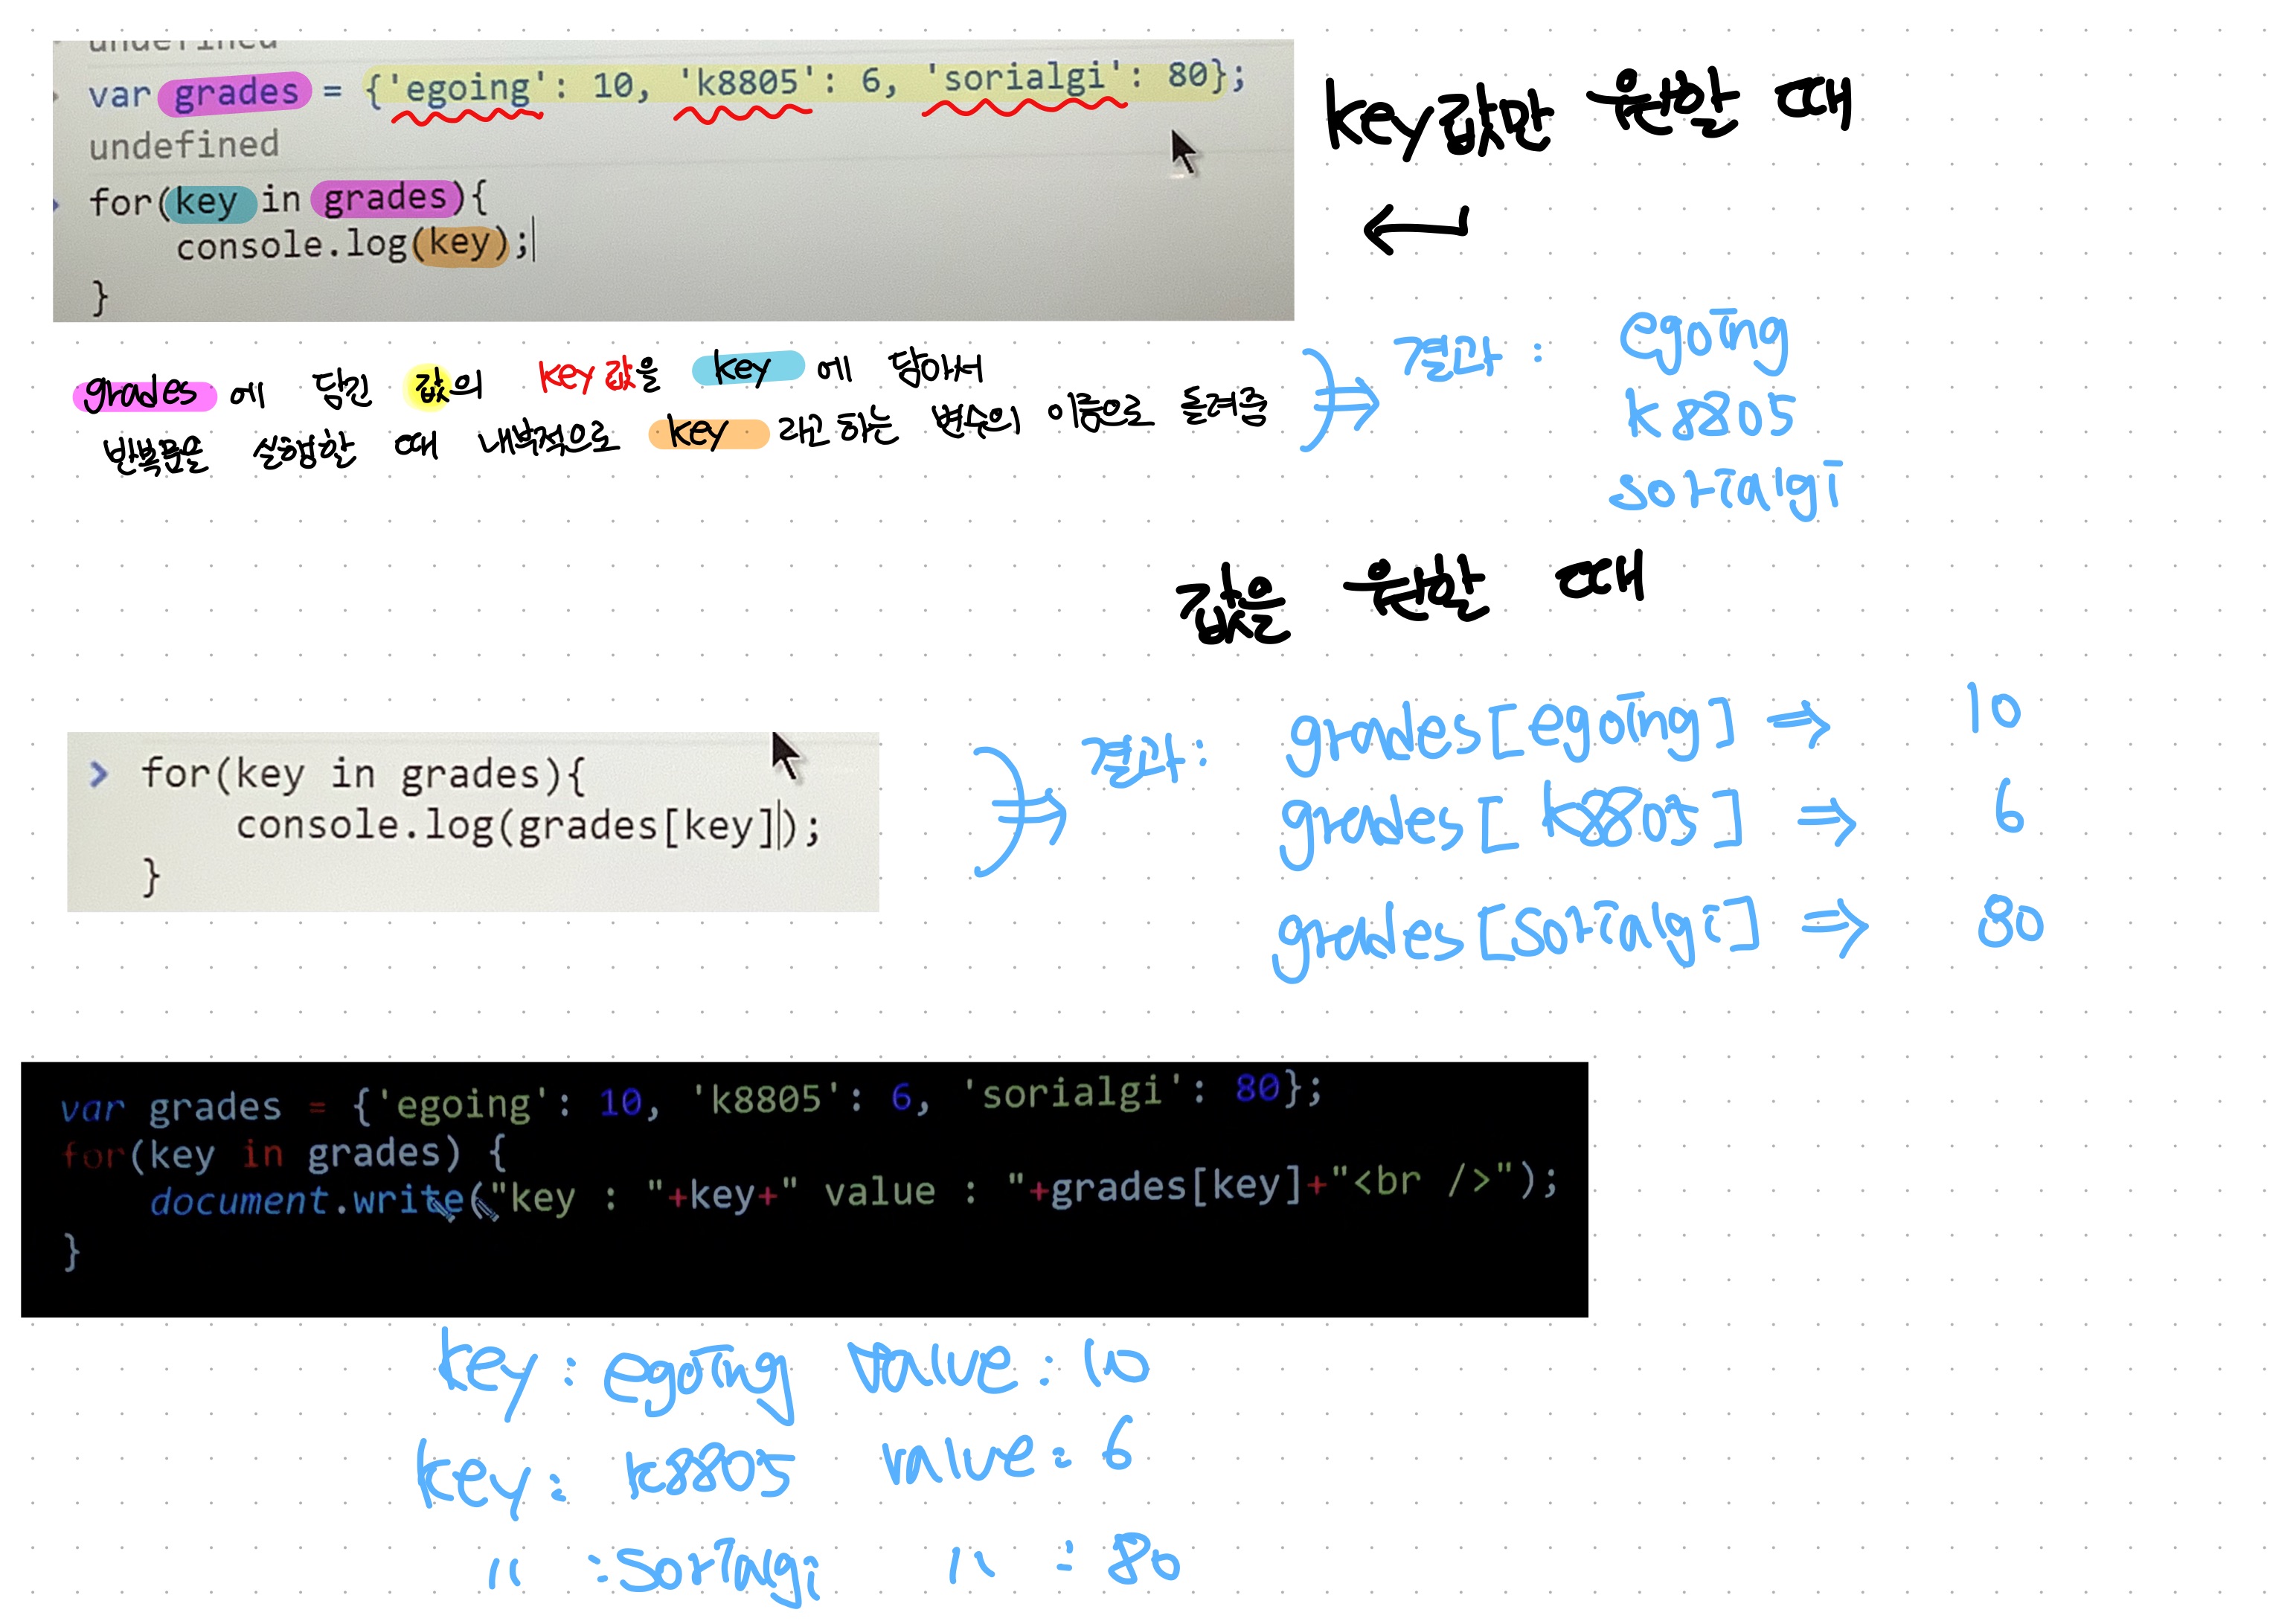 undefined
var grades = {'egoing': 10, 'k8805': 6, 'sorialgi': 80};
undefined
for(key in grades){
console.log(key);
}
key값만 원할 때
grades에 담긴 값의 key값을 key에 담아서
반복문을 실행할 때 내부적으로 key 라고 하는 변수의 이름으로 돌려줌
결과 : egoing
k8805
sorialgi
값을 원할 때
> for(key in grades){
console.log(grades[key]);
}
결과 : grades[egoing] ⇒ 10
grades[k8805] ⇒ 6
grades[sorialgi] ⇒ 80
var grades = {'egoing': 10, 'k8805': 6, 'sorialgi': 80};
for(key in grades) {
document.write("key : "+key+" value : "+grades[key]+"<br />");
}
key : egoing value : 10
key : k8805 value : 6
〃 : sorialgi 〃 : 80